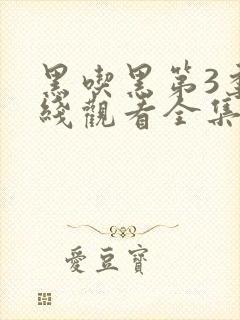 黑喫黑第3季
綫觀看全集
愛豆寶